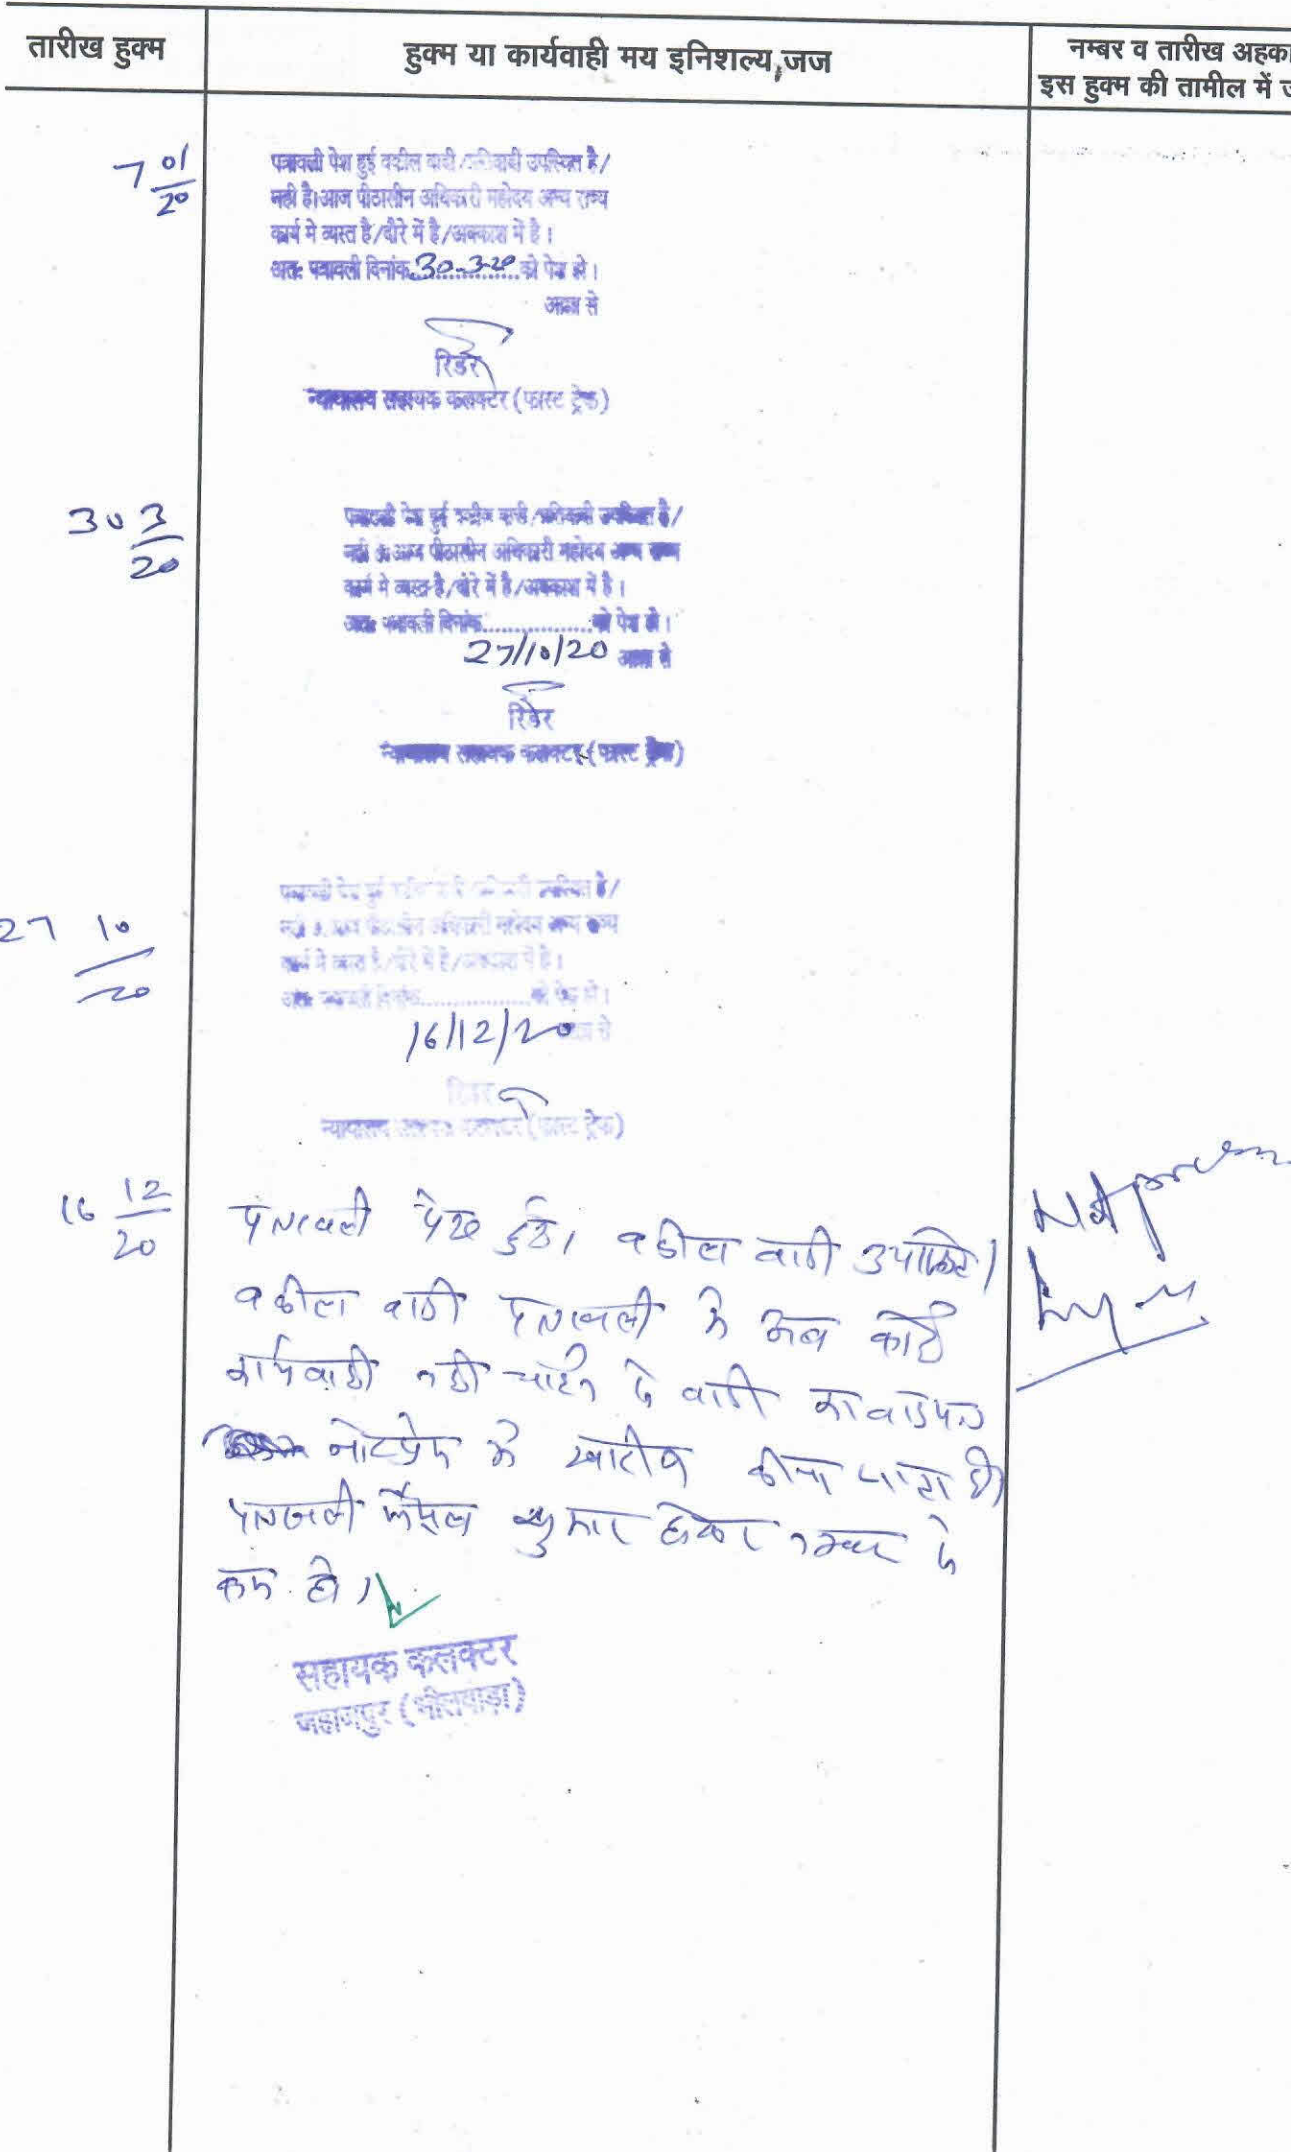 तारीख हुक्म
हुक्म या कार्यवाही मय इनिशल्य जज
नम्बर व तारीख अहका
इस हुक्म की तामील में ज
7 01/20
पत्रावली पेश हुई वकील वादी/प्रतिवादी उपस्थित है/
नही है।आज पीठासीन अधिकारी महोदय अन्य राज्य
कार्य मे व्यस्त है/दौरे में है/अवकाश में है।
अतः पत्रावली दिनांक 30-3-20 को पेश हो।
आज्ञा से
रिडर
न्यायालय सहायक कलक्टर (फास्ट ट्रेक)
30 3/20
पत्रावली पेश हुई वकील वादी/प्रतिवादी उपस्थित है/
नही है।आज पीठासीन अधिकारी महोदय अन्य राज्य
कार्य मे व्यस्त है/दौरे में है/अवकाश में है।
अतः पत्रावली दिनांक..................को पेश हो।
27/10/20 आज्ञा से
रिडर
न्यायालय सहायक कलक्टर (फास्ट ट्रेक)
27 10/20
पत्रावली पेश हुई वकील वादी/प्रतिवादी उपस्थित है/
नही है।आज पीठासीन अधिकारी महोदय अन्य राज्य
कार्य मे व्यस्त है/दौरे में है/अवकाश में है।
अतः पत्रावली दिनांक..................को पेश हो।
16/12/20 आज्ञा से
रिडर
न्यायालय सहायक कलक्टर (फास्ट ट्रेक)
16 12/20
पत्रावली पेश हुई। वकील वादी उपस्थित।
वकील वादी पत्रावली मे अब कोई
कार्यवाही नही चाहते है वादी का वादपत्र
नोटप्रेस मे खारीज कीया जाता है।
पत्रावली फैसल शुमार होकर नम्बर से
कम हो।
Not press
सहायक कलक्टर
जहाजपुर (भीलवाड़ा)